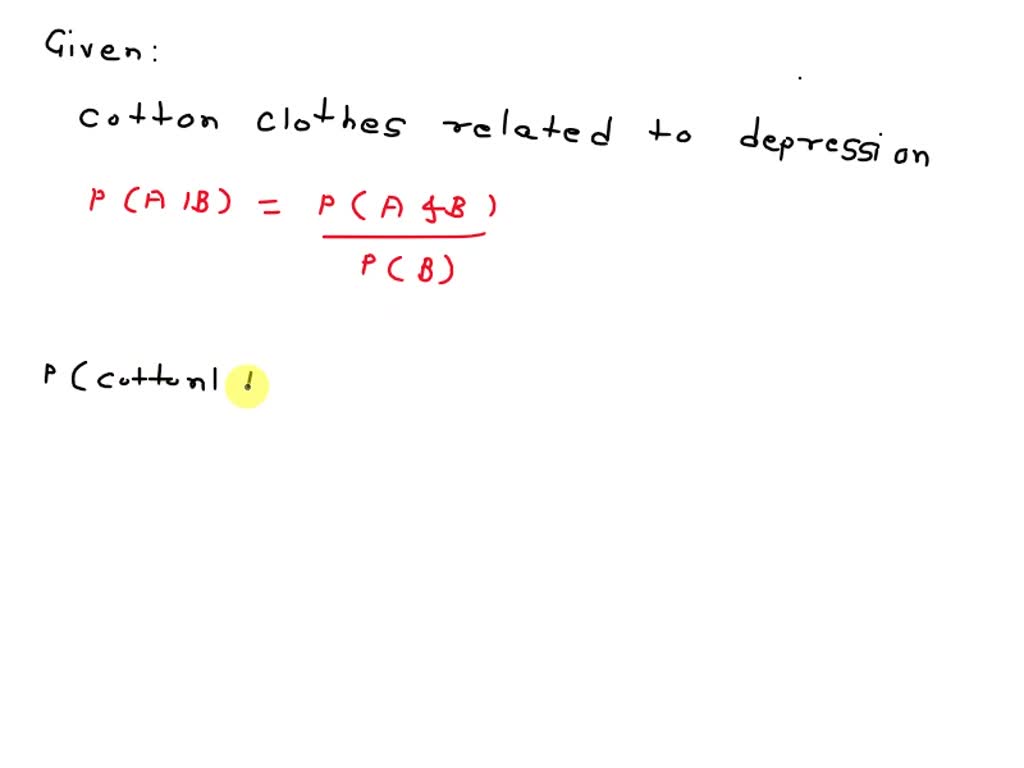 Given:
cotton clothes related to depression
P(A|B) = P(A & B)
P(B)
P(cotton|